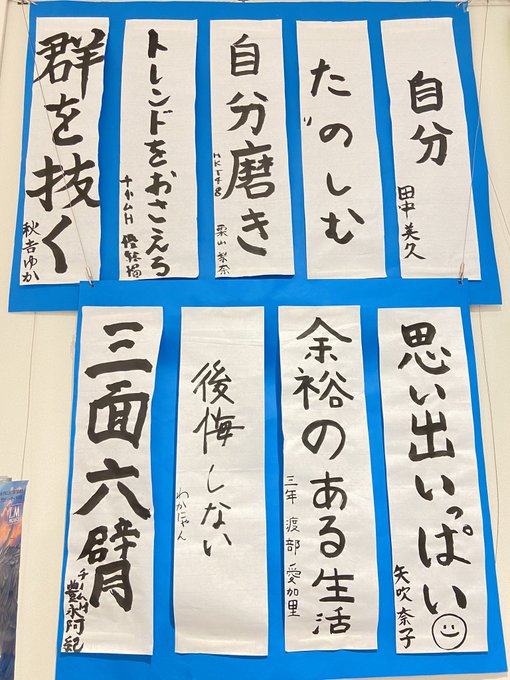 自分
田中美久
たのしむ
自分磨き
HKT48 栗山梨奈
トレンドをおさえる
チームH
群を抜く
秋吉ゆか
思い出いっぱい
矢吹奈子
余裕のある生活
三年 渡部 愛加里
後悔しない
わかにゃん
三面六臂
チームH 豊永阿紀